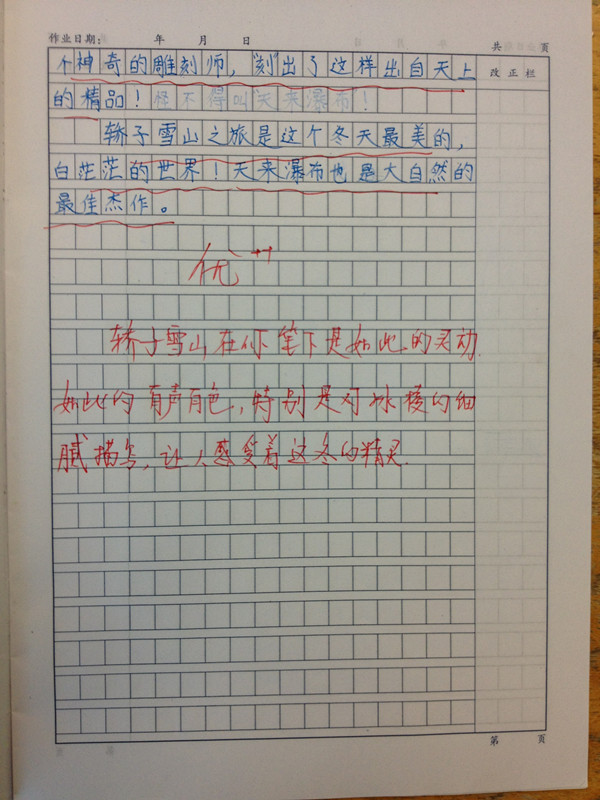 作业日期: 年 月 日 共 页
个神奇的雕刻师，“刻”出了这样出自天上 改正栏
的精品！怪不得叫“天来瀑布”！
轿子雪山之旅是这个冬天最美的，
白茫茫的世界！天来瀑布也是大自然的
最佳杰作。
优++
轿子雪山在你笔下是如此的灵动
如此的有声有色，特别是对冰棱的细
腻描写，让人感受着这冬的精灵.
第 页